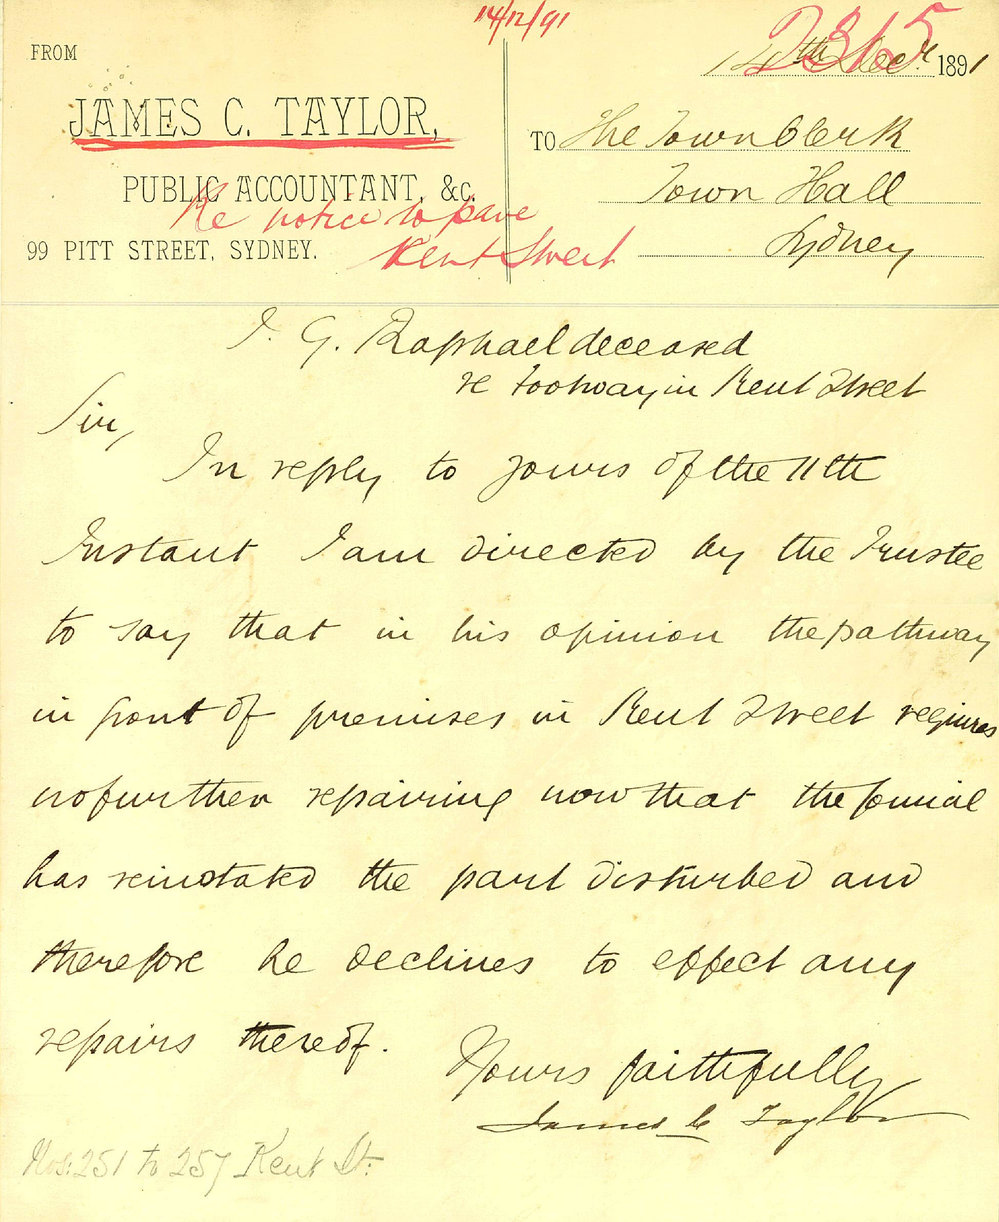 14/12/91
2315
FROM
14th Decr. 1891
JAMES C. TAYLOR,
TO The Town Clerk
PUBLIC ACCOUNTANT, &c.
Town Hall
Re notice to pave
99 PITT STREET, SYDNEY.
Kent Street
Sydney
J. G. Raphael deceased
re Footway in Kent Street
Sir,
In reply to yours of the 11th
Instant I am directed by the Trustee
to say that in his opinion the pathway
in front of premises in Kent Street requires
no further repairing now that the
has reinstated the part disturbed and
therefore he declines to effect any
repairs thereof.
Yours faithfully
James C Taylor
Nos: 251 to 257 Kent St: